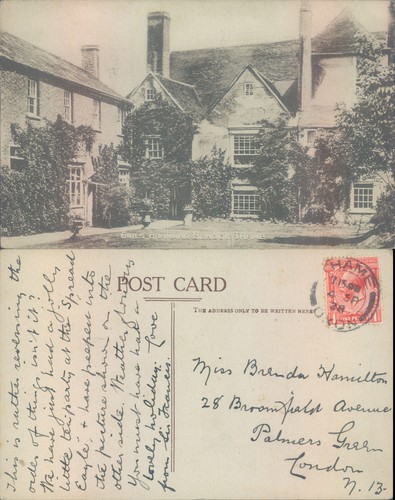 POST CARD
THE ADDRESS ONLY TO BE WRITTEN HERE
This is rather reversing the
order of things isn't it?
We have just had a jolly
little tea party at the "Spread
Eagle" & have peeped into
the picture shown on the
other side. Weather glorious
You must have had a
lovely holiday. Love
from Sir Frances.
THAME
7.15 PM
SP
OXON
Miss Brenda Hamilton
28 Broomfield Avenue
Palmers Green
London
N. 13.